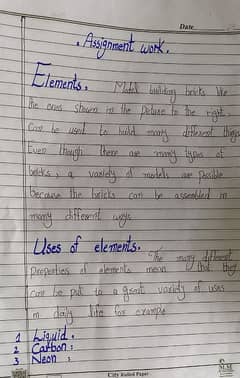 Date
. Assignment work.
Elements. Model building bricks like
the ones shown in the picture to the right,
Can be used to build many different things
Even though there are many types of
bricks, a variety of models are possible
because the bricks can be assembled in
many different ways
Uses of elements. The many different
properties of elements mean that they
can be put to a great variety of uses
in daily life for example
1 Liquid.
2 Carbon:
3 Neon :
City Ruled Paper